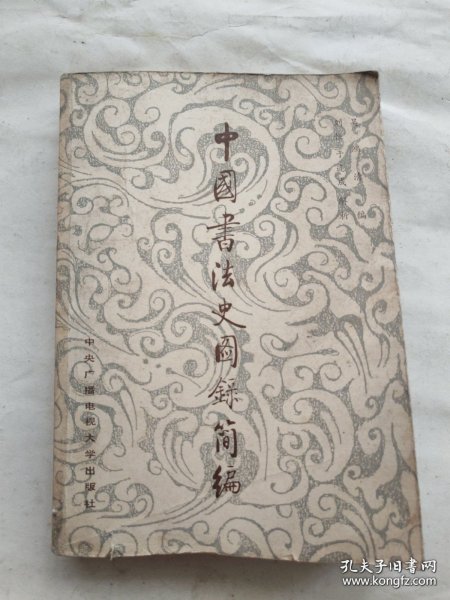 中國書法史圖錄簡編
中央广播电视大学出版社
孔夫子旧书网
www.kongfz.com